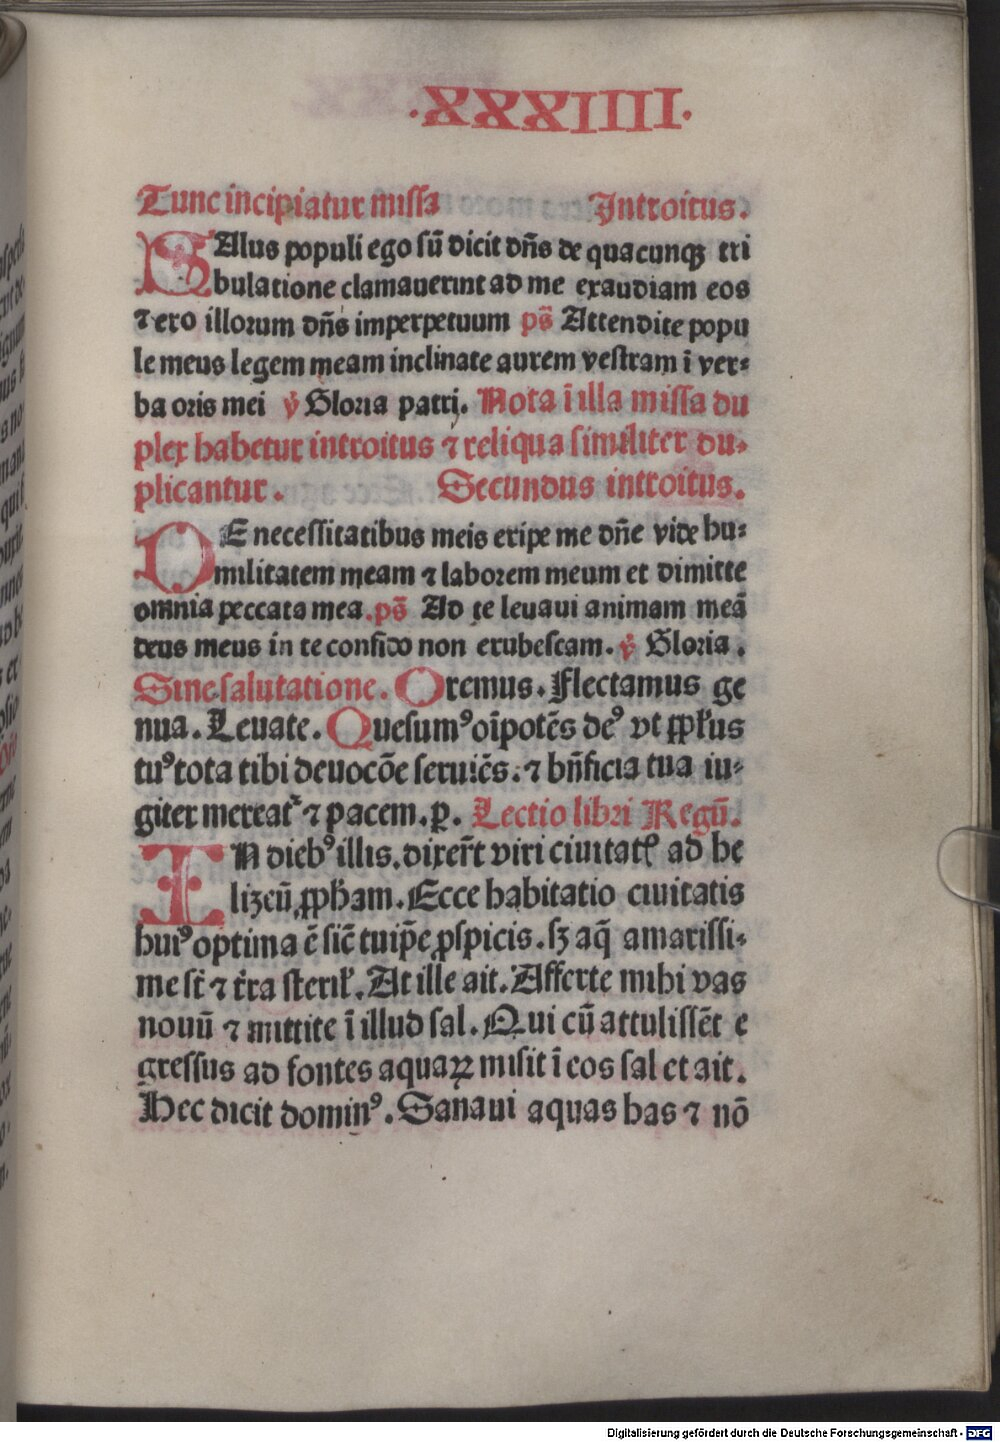 ·XXXIIII·
Tunc incipiatur missa Introitus.
SAlus populi ego sũ dicit dñs de quacunqꝫ tri
bulatione clamauerint ad me exaudiam eos
⁊ ero illorum dñs imperpetuum ps̃ Attendite popu
le meus legem meam inclinate aurem vestram ĩ ver⸗
ba oris mei ℣ Gloria patri. Nota ĩ illa missa du
plex habetur introitus ⁊ reliqua similiter du⸗
plicantur. Secundus introitus.
DE necessitatibus meis eripe me dñe vide hu⸗
militatem meam ⁊ laborem meum et dimitte
omnia peccata mea. ps̃ Ad te leuaui animam meã
deus meus in te confido non erubescam. ℣ Gloria.
Sine salutatione. Oremus. Flectamus ge
nua. Leuate. Quesumꝰ oĩpotẽs deꝰ vt ꝓpl̃us
tuꝰ tota tibi deuocõe seruiẽs. ⁊ bñficia tua iu⸗
giter mereat᷑ ⁊ pacem. p. Lectio libri Regũ.
IN diebꝰ illis. dixer̃t viri ciuitatꝭ ad he
lizeũ ꝓph̃am. Ecce habitatio ciuitatis
huiꝰ optima ẽ sic̃ tuip̃e ꝓspicis. sꝫ aq̃ amarissi⸗
me st̃ ⁊ t̃ra steril̃. At ille ait. Afferte mihi vas
nouũ ⁊ mittite ĩ illud sal. Qui cũ attulissẽt e
gressus ad fontes aquaꝝ misit ĩ eos sal et ait.
Hec dicit dominꝰ. Sanaui aquas has ⁊ nõ
Digitalisierung gefördert durch die Deutsche Forschungsgemeinschaft - DFG